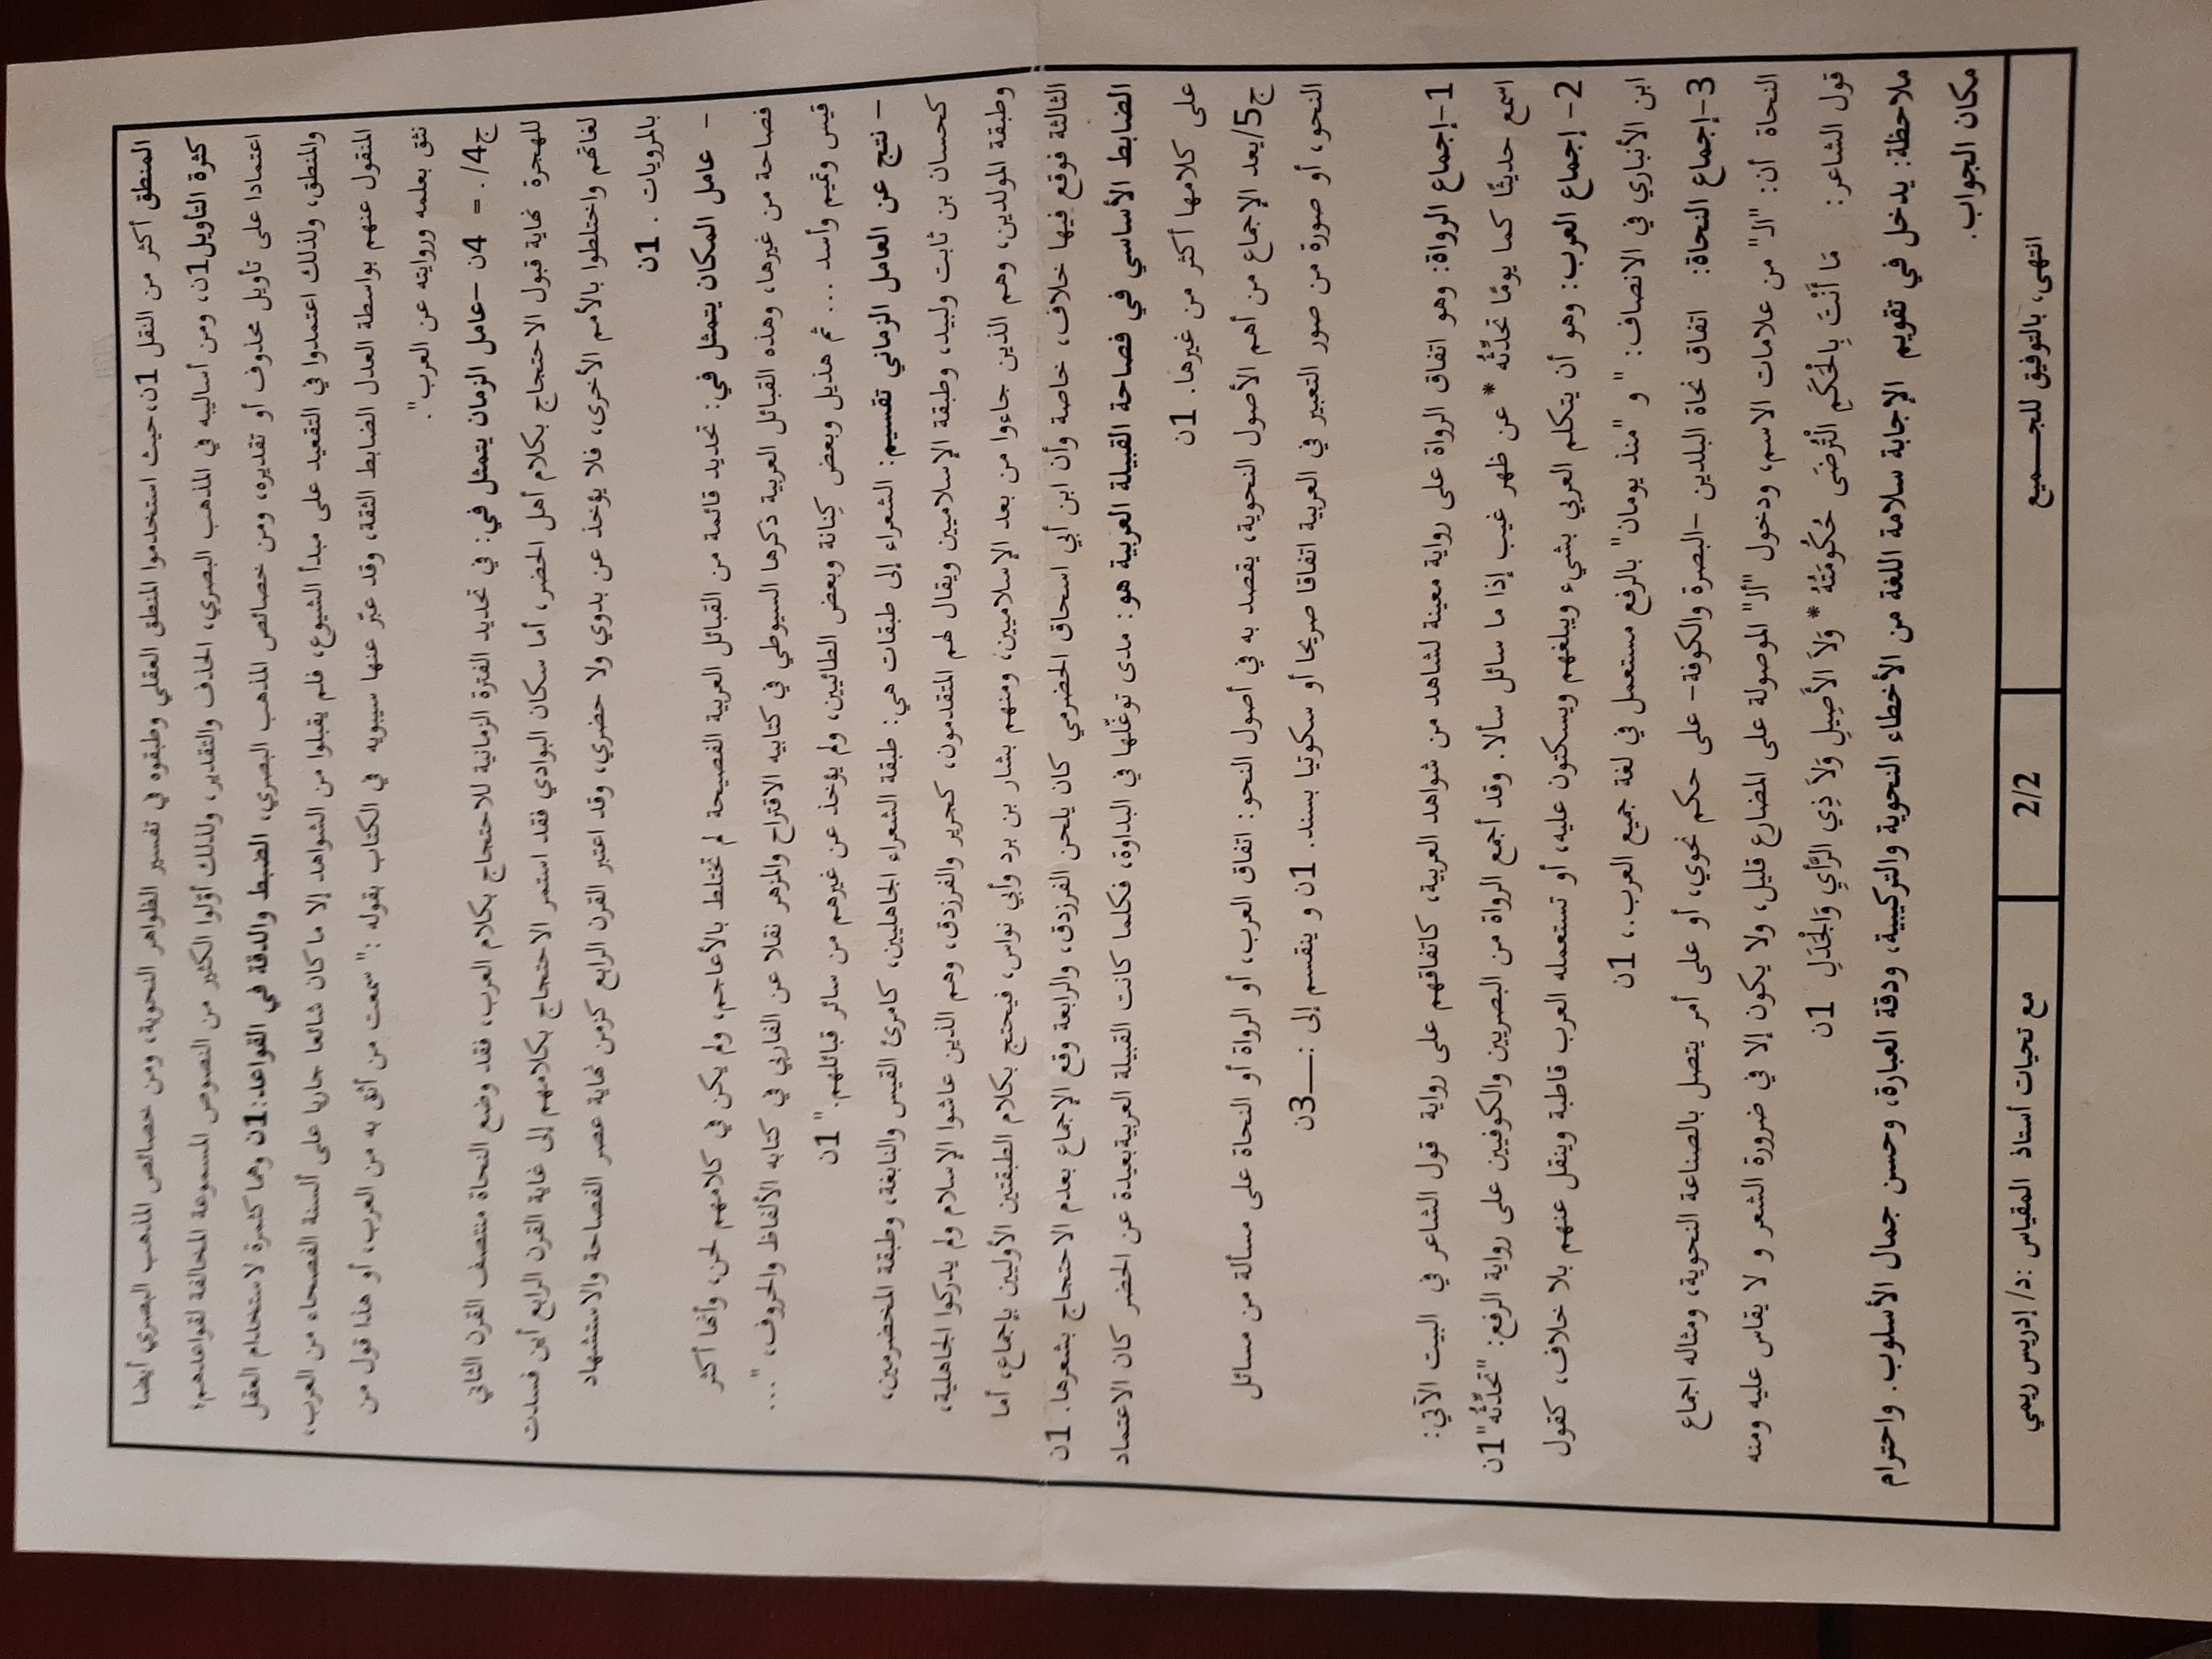 المنطق أكثر من النقل 1ن،حيث استخدموا المنطق العقلي وطبقوه في تفسير الظواهر النحوية، ومن خصائص المذهب البصري أيضا
كثرة التأويل1ن، ومن أساليبه في المذهب البصري، الحذف والتقدير، ولذلك أوّلوا الكثير من النصوص المسموعة المخالفة لقواعدهم؛
اعتمادا على تأويل محذوف أو تقديره، ومن خصائص المذهب البصري، الضبط والدقة في القواعد:1ن وهما كثمرة لاستخدام العقل
والمنطق، ولذلك اعتمدوا في التقعيد على مبدأ الشيوع، فلم يقبلوا من الشواهد إلا ما كان شائعا جاريا على ألسنة الفصحاء من العرب،
المنقول عنهم بواسطة العدل الضابط الثقة، وقد عبّر عنها سيبويه في الكتاب بقوله :" سمعت من أثق به من العرب، أو هذا قول من
نثق بعلمه وروايته عن العرب".
ج4/. = 4ن –عامل الزمان يتمثل في: في تحديد الفترة الزمانية للاحتجاج بكلام العرب، فقد وضع النحاة منتصف القرن الثاني
للهجرة نهاية قبول الاحتجاج بكلام أهل الحضر، أما سكان البوادي فقد استمر الاحتجاج بكلامهم إلى غاية القرن الرابع أين فسدت
لغاتهم واختلطوا بالأمم الأخرى، فلا يؤخذ عن بدوي ولا حضري، وقد اعتبر القرن الرابع كزمن نهاية عصر الفصاحة والاستشهاد
بالمرويات . 1ن
– عامل المكان يتمثل في: تحديد قائمة من القبائل العربية الفصيحة لم تختلط بالأعاجم، ولم يكن في كلامهم لحن، وأنها أكثر
فصاحة من غيرها، وهذه القبائل العربية ذكرها السيوطي في كتابيه الاقتراح والمزهر نقلا عن الفاربي في كتابه الألفاظ والحروف، "...
قيس وتميم وأسد ... ثم هذيل وبعض كِنانة وبعض الطائيين، ولم يؤخذ عن غيرهم من سائر قبائلهم." 1ن
– نتج عن العامل الزماني تقسيم: الشعراء إلى طبقات هي: طبقة الشعراء الجاهليين، كامرئ القيس والنابغة، وطبقة المخضرمين،
كحسان بن ثابت ولبيد، وطبقة الإسلاميين ويقال لهم المتقدمون، كجرير والفرزدق، وهم الذين عاشوا الإسلام ولم يدركوا الجاهلية،
وطبقة المولدين، وهم الذين جاءوا من بعد الإسلاميين، ومنهم بشار بن برد وأبي نواس، فيحتج بكلام الطبقتين الأوليين بإجماع، أما
الثالثة فوقع فيها خلاف، خاصة وأن ابن أبي اسحاق الحضرمي كان يلحن الفرزدق، والرابعة وقع الإجماع بعدم الاحتجاج بشعرها. 1ن
الضابط الأساسي في فصاحة القبيلة العربية هو: مدى توغّلها في البداوة، فكلما كانت القبيلة العربيةبعيدة عن الحضر كان الاعتماد
على كلامها أكثر من غيرها. 1ن
ج5/يعد الإجماع من أهم الأصول النحوية، يقصد به في أصول النحو: اتفاق العرب، أو الرواة أو النحاة على مسألة من مسائل
النحو، أو صورة من صور التعبير في العربية اتفاقا صريحا أو سكوتيا بسند. 1ن و ينقسم إلى :—3ن
1-إجماع الرواة: وهو اتفاق الرواة على رواية معينة لشاهد من شواهد العربية، كاتفاقهم على رواية قول الشاعر في البيت الآتي:
اسمع حديثًا كما يومًا تحدّثُه * عن ظهر غيب إذا ما سائل سألا. وقد أجمع الرواة من البصريين والكوفيين على رواية الرفع: "تحدّثُه"1ن
2- إجماع العرب: وهو أن يتكلم العربي بشيء ويبلغهم ويسكتون عليه، أو تستعمله العرب قاطبة وينقل عنهم بلا خلاف، كقول
ابن الأنباري في الانصاف: "و "منذ يومان" بالرفع مستعمل في لغة جميع العرب..، 1ن
3-إجماع النحاة: اتفاق نحاة البلدين –البصرة والكوفة– على حكم نحوي، أو على أمر يتصل بالصناعة النحوية، ومثاله اجماع
النحاة أن: "الـ" من علامات الاسم، ودخول "ألـ" الموصولة على المضارع قليل، ولا يكون إلا في ضرورة الشعر و لا يقاس عليه ومنه
قول الشاعر: مَا أَنْتَ بِالْحَكَمِ الْتُرْضَى حُكُومَتُهُ * وَلاَ الأَصِيلِ وَلاَ ذِي الرَّأيِ وَالْجَدَلِ 1ن
ملاحظة: يدخل في تقويم الإجابة سلامة اللغة من الأخطاء النحوية والتركيبية، ودقة العبارة، وحسن جمال الأسلوب. واحترام
مكان الجواب.
مع تحيات أستاذ المقياس :د/ إدريس ريمي
2/2
انتهى، بالتوفيق للجـــميع